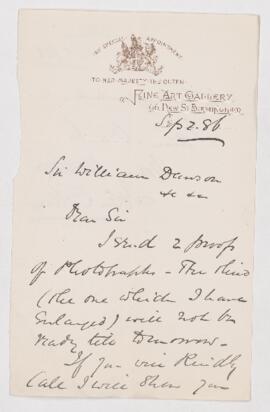 BY SPECIAL APPOINTMENT
TO HER MAJESTY THE QUEEN
FINE ART GALLERY
66, NEW ST BIRMINGHAM
Sep 2. 86
Sir William Dawson
&c &c
Dear Sir
I send 2 proofs
of Photographs - The third
(the one which I have
Enlarged) will not be
ready till tomorrow -
If you will Kindly
Call I will show you